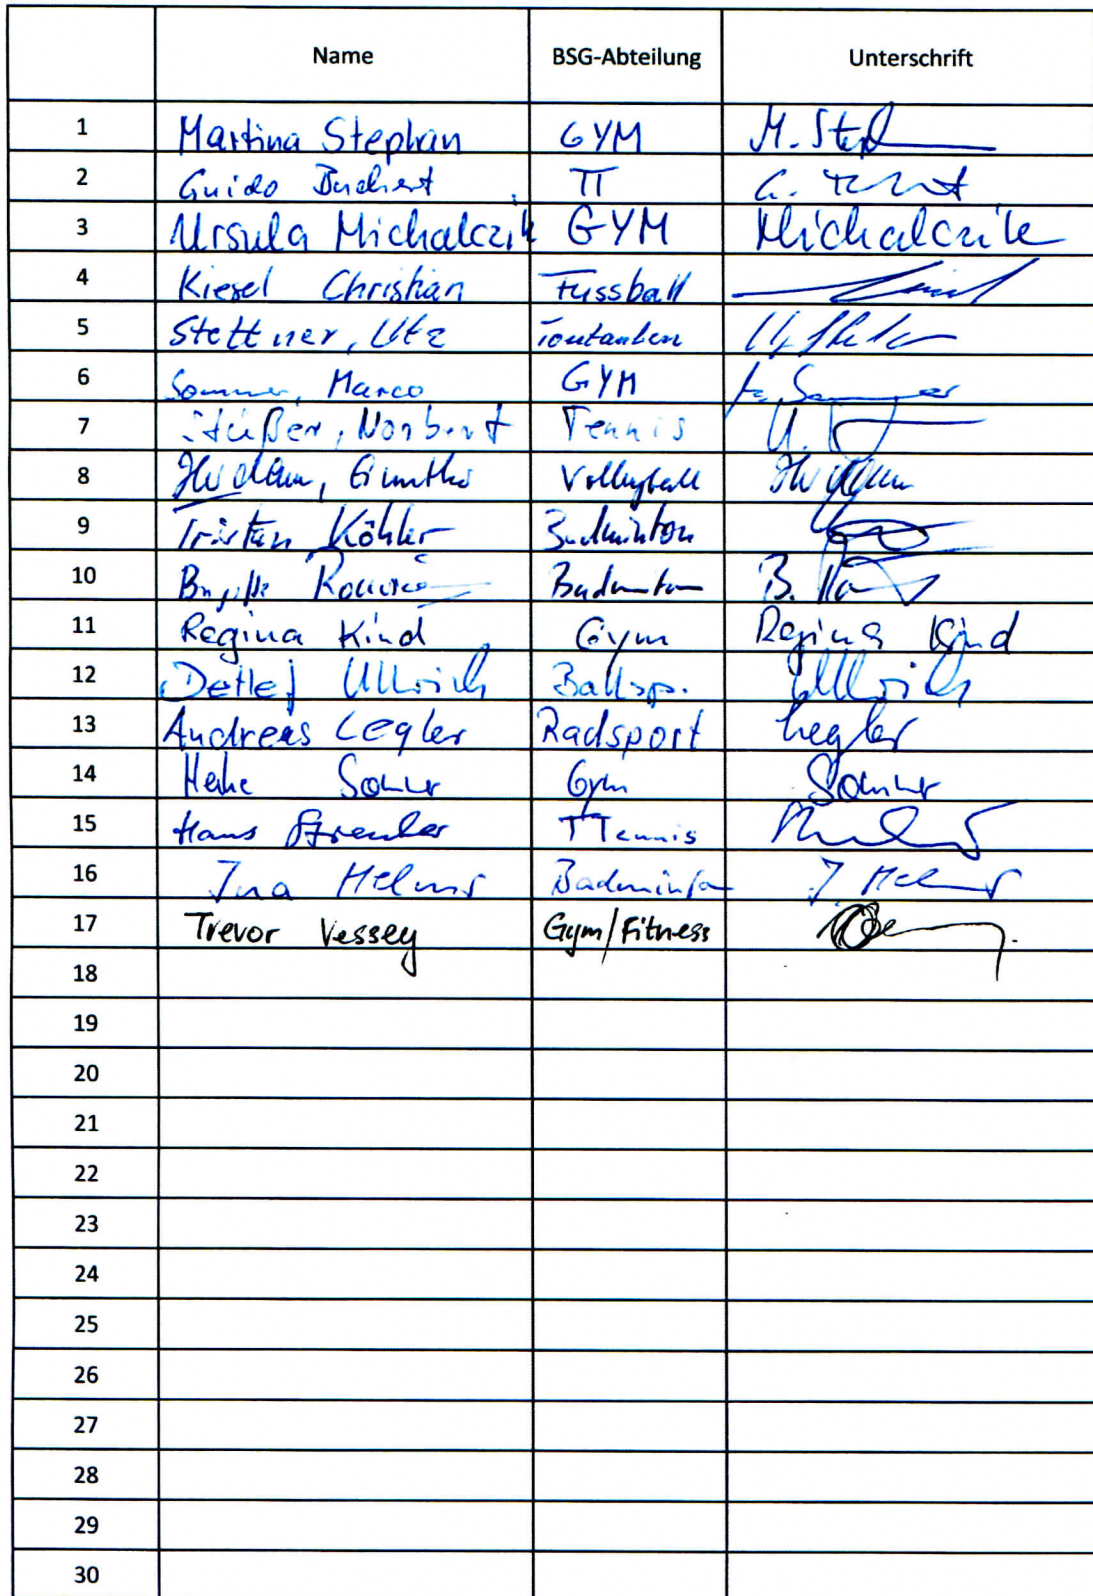 Name BSG-Abteilung Unterschrift
1 Martina Stephan GYM M. Steph
2 Guido TT G.
3 Ursula Michalczik GYM Michalczik
4 Kiesel Christian Fussball
5 Stettner, Utz
6 Sommer, Marco GYM
7 Norbert Tennis
8 Volleyball
9 Tristan Köhler Badminton
10 Badminton B.
11 Regina Kind Gym Regina Kind
12 Detlef Ullrich Ballsp. Ullrich
13 Andreas Legler Radsport Legler
14 Heike Sommer Gym Sommer
15 Hans TTennis
16 Ina Helms Badminton I. Helms
17 Trevor Vessey Gym/Fitness
18
19
20
21
22
23
24
25
26
27
28
29
30